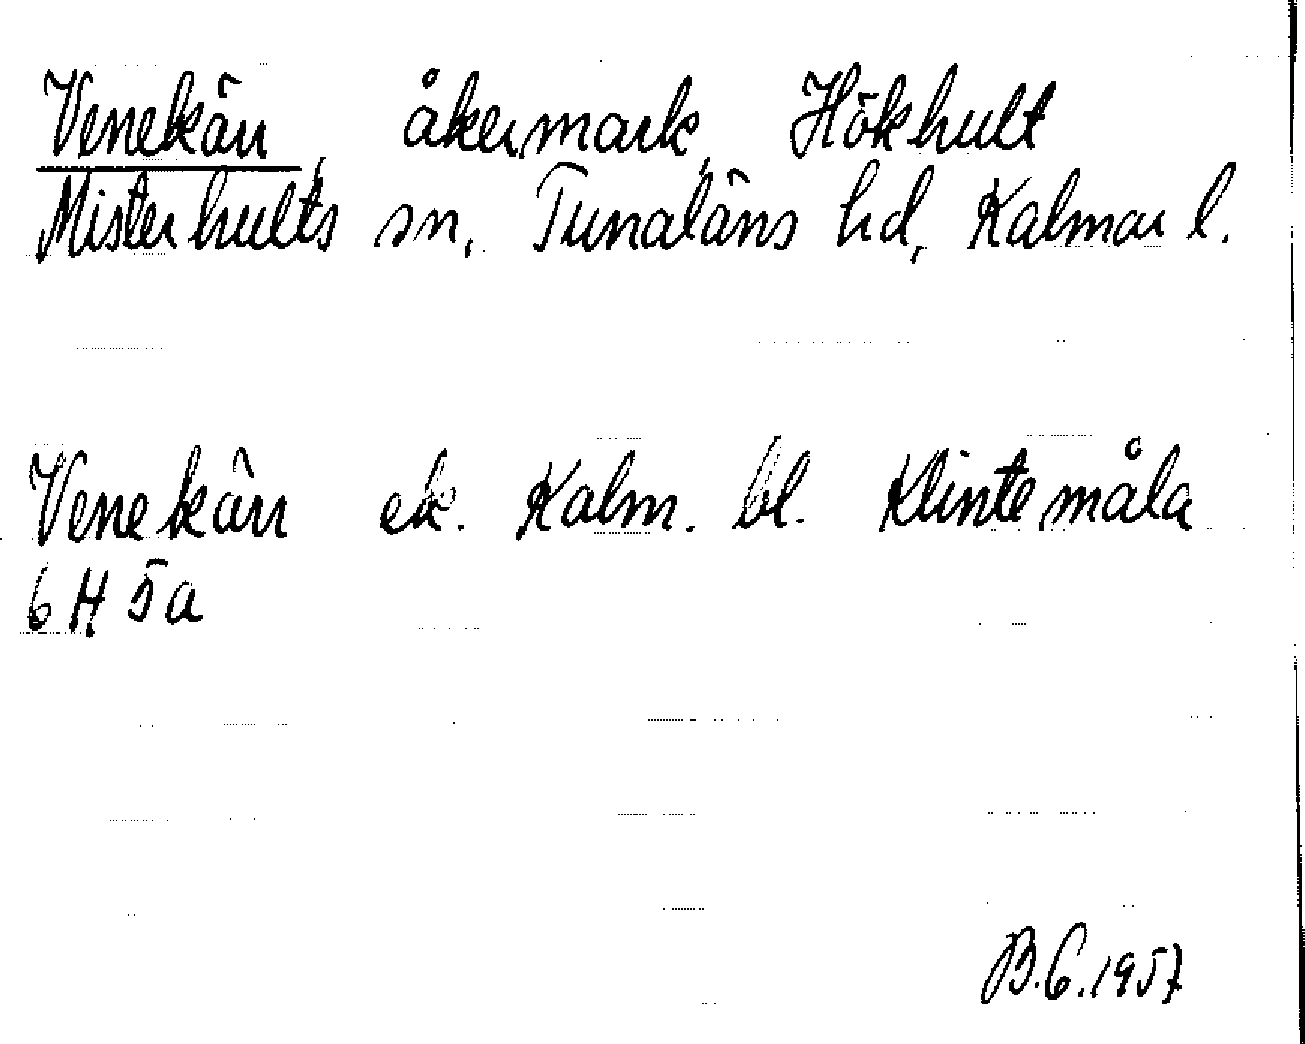 Venekärr, åkermark, Hökhult
Misterhults sn, Tunaläns hd, Kalmar l.
Venekärr ek. Kalm. bl. Klintemåla
6 H 5 a
B.G. 1957